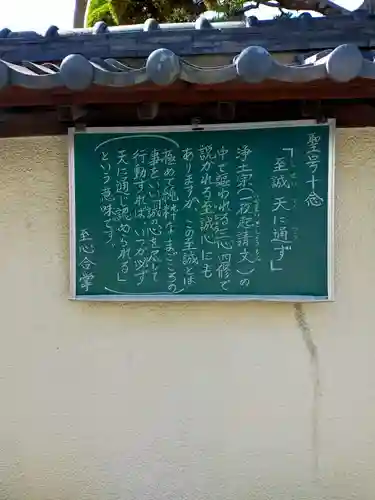 聖号十念
「至誠 天に通ず」
しせい
つう
浄土宗(一枚起請文)の
いちまいきしょうもん
中で謳われる三心四修で
説かれる至誠心にも
ありますが、この至誠とは
(極めて純粋なまごころの
事をいい「誠の心を尽して
行動すれば、いつか必ず
天に通じ認められる」
という意味です。)
至心合掌